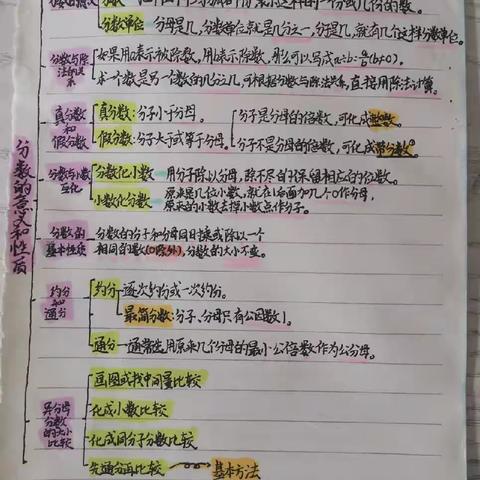 分数单位:分母是几,分数单位就是几分之一,分子是几,就有几个这样分数单位。
分数与除法的关系
如果用a表示被除数,用b表示除数,那么可以写成a÷b=a/b(b≠0)
求一个数是另一个数的几分之几,可根据分数与除法关系,直接用除法计算。
真分数和假分数
真分数:分子小于分母。
假分数:分子大于或等于分母。
分子是分母的倍数,可化成整数
分子不是分母的倍数,可化成带分数
分数的意义和性质
分数与小数互化
分数化小数—用分子除以分母,除不尽的保留相应的位数。
小数化分数
原来是几位小数,就在1后面加几个0作分母,
原来的小数去掉小数点作分子。
分数的基本性质
分数的分子和分母同时乘或除以一个
相同的数(0除外),分数的大小不变。
约分和通分
约分—逐次约分或一次约分。
最简分数:分子、分母只有公因数1。
通分—通常选用原来几个分母的最小公倍数作为公分母。
异分母分数的大小比较
画图或找中间量比较
化成小数比较
化成同分子分数比较
先通分再比较
基本方法